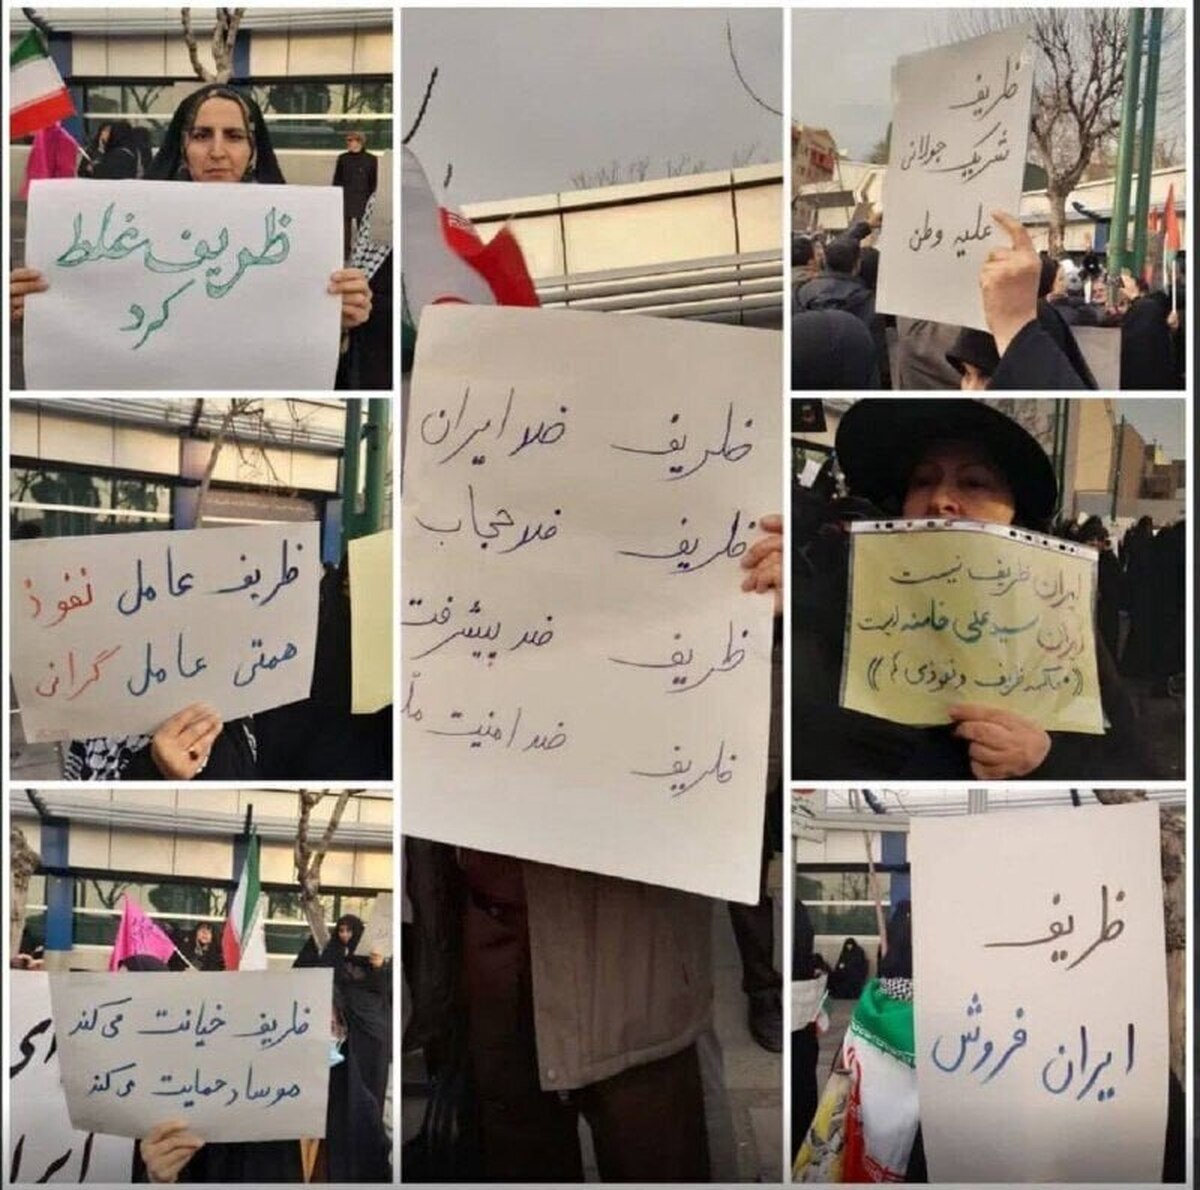 ظریف غلط
کرد
ظریف ضد ایران
ظریف ضد حجاب
ظریف ضد پیشرفت
ظریف ضد امنیت
ظریف
شریک جولانی
علیه وطن
ظریف عامل نفوذ
همتی عامل گرانی
ایران ظریف نیست
ایران سید علی خامنه است
ظریف خیانت می‌کند
موساد حمایت می‌کند
ظریف
ایران فروش